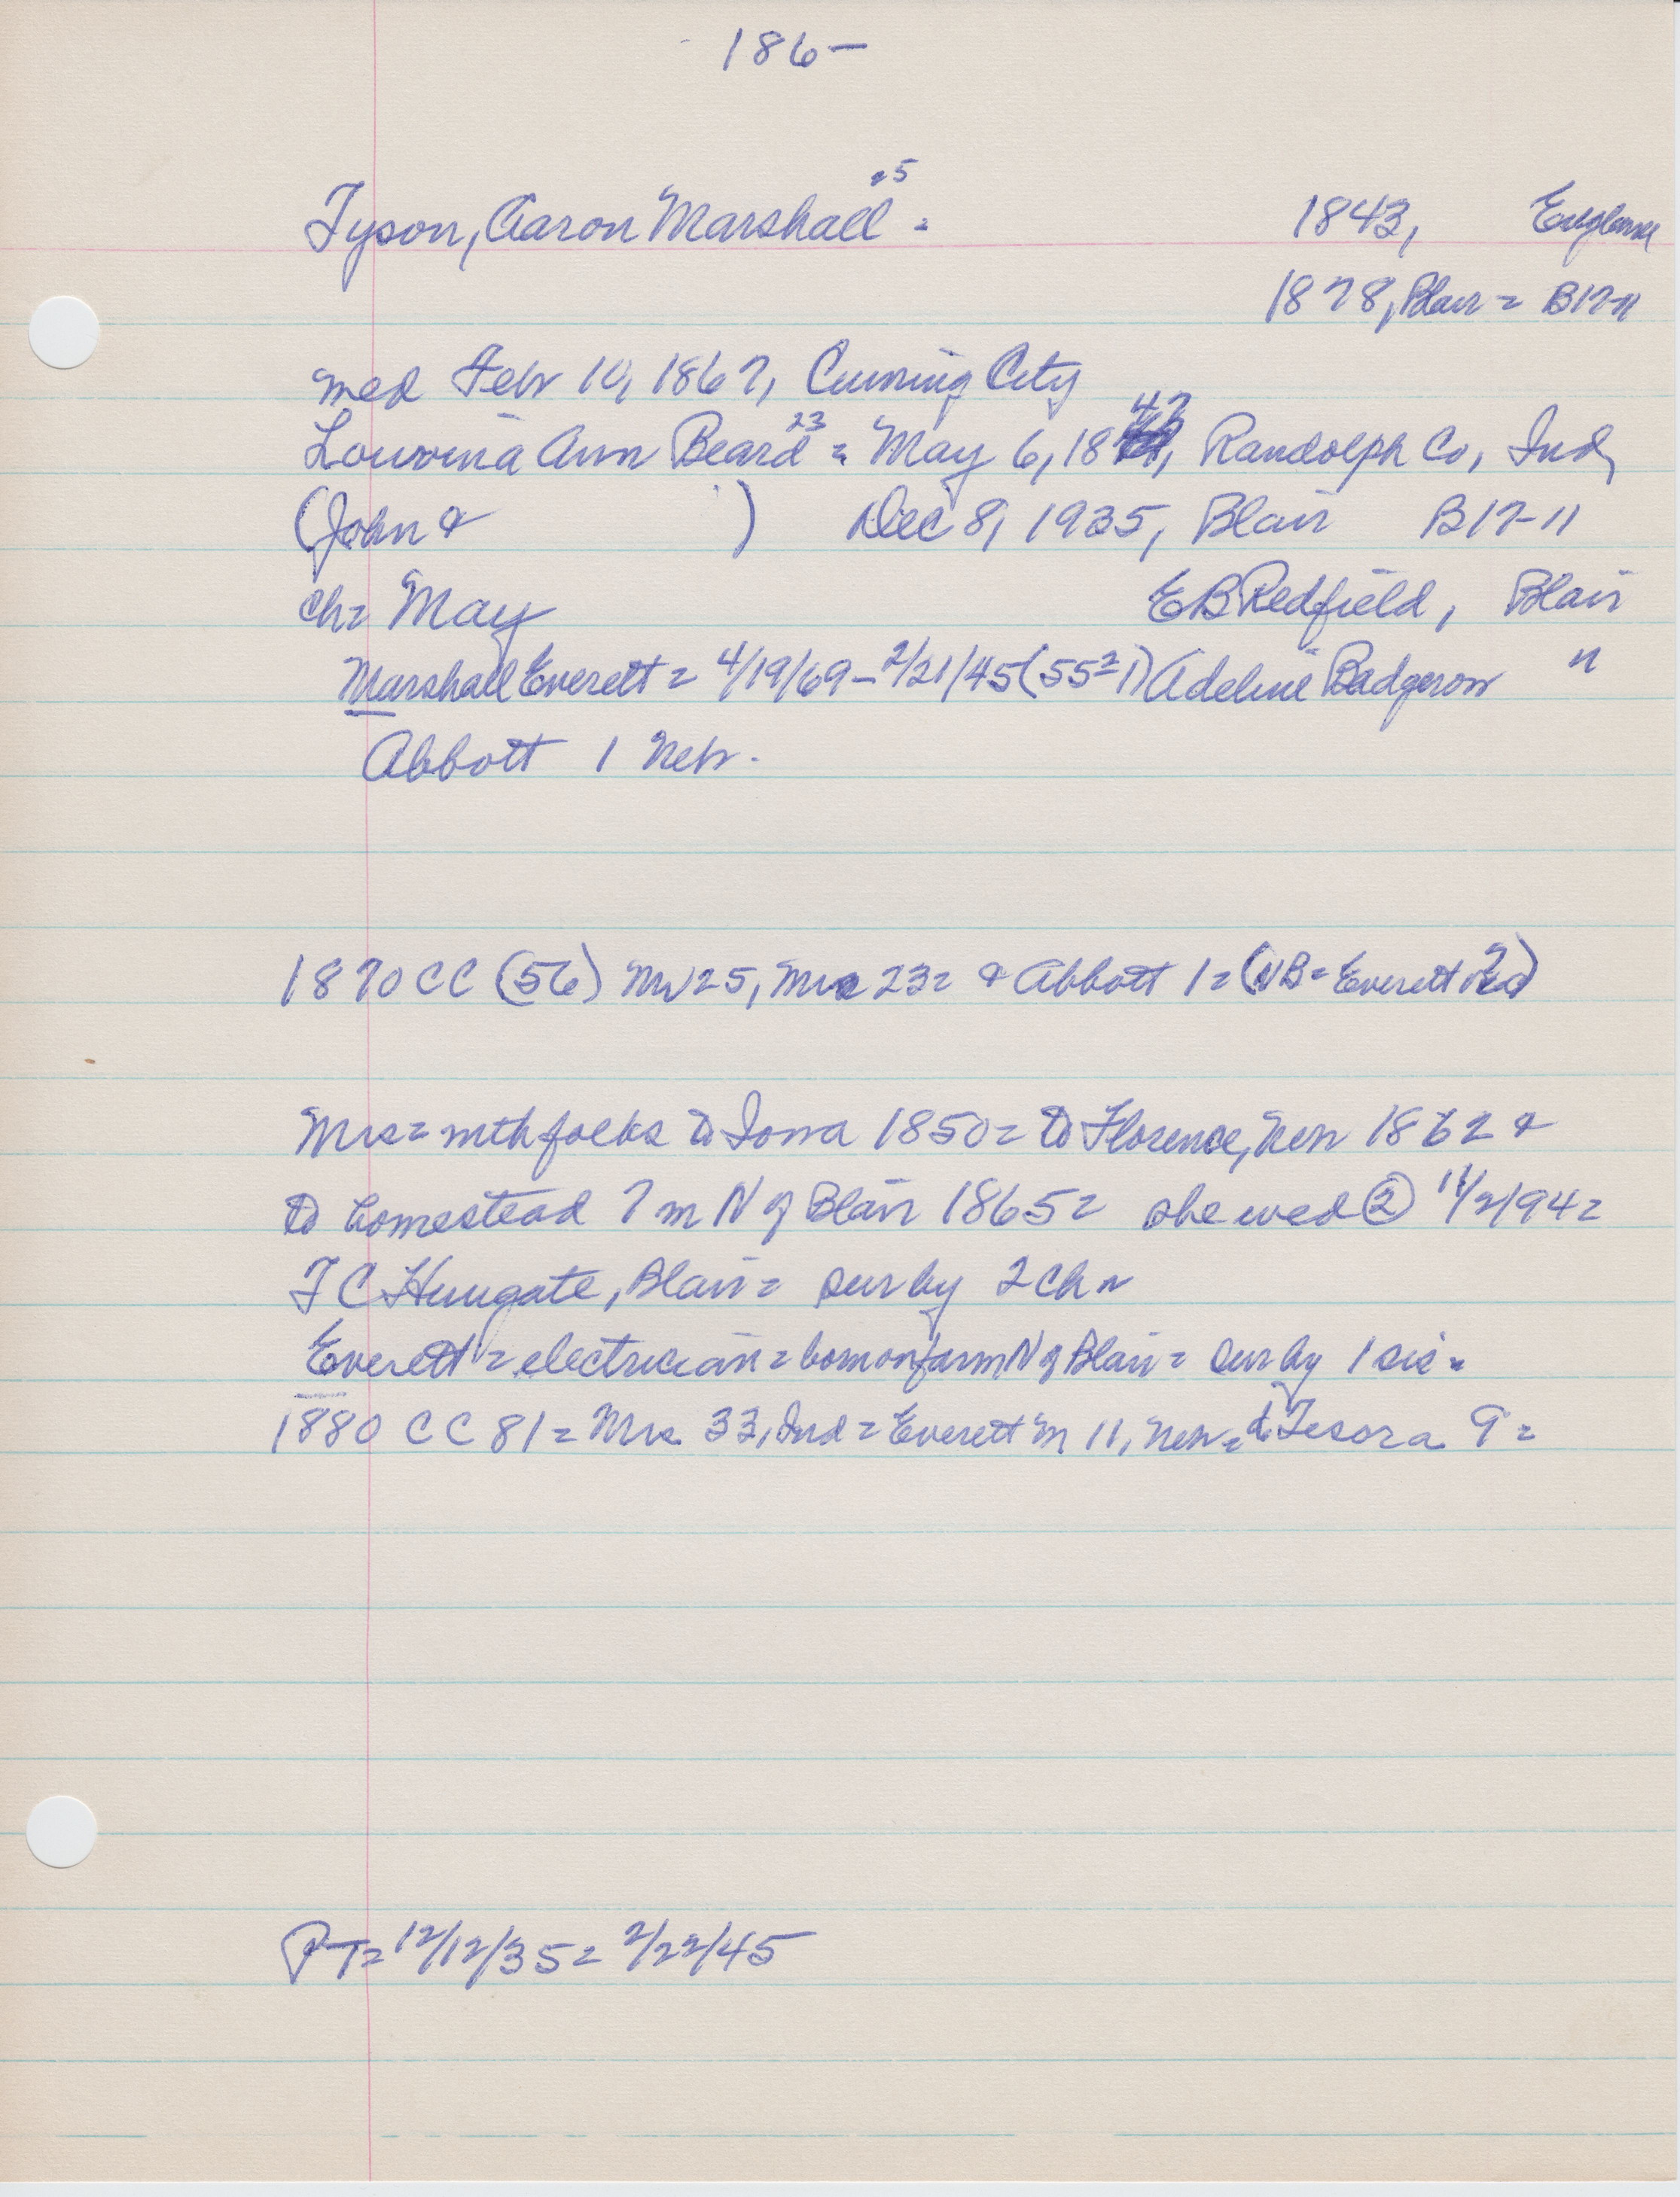 186-
Tyson, Aaron Marshall 25 = 1843, England
1878, Blair = B17-11
med Febr 10, 1867, Cuming City
Louvina Ann Beard 23 = May 6, 1847, Randolph Co, Ind,
(John & ) Dec 8, 1935, Blair B17-11
ch= May E B Redfield, Blair
Marshall Everett = 4/19/69 - 2/21/45 (55-21) Adeline Badgerow "
Abbott 1 Nebr.
1870 CC (56) Mr 25, Mrs 23 = & Abbott 1 = (NB = Everett ?)
Mrs = mth folks to Iowa 1850 = to Florence, Nebr 1862 &
to homestead 7 m N of Blair 1865 = she wed ② 11/2/94 =
T C Hungate, Blair = sur by 2 ch =
Everett = electrician = born on farm N of Blair = sur by 1 sis =
1880 CC 81 = Mrs 33, Ind = Everett M 11, Nebr = d Tesora 9 =
PT = 12/12/35 = 2/22/45